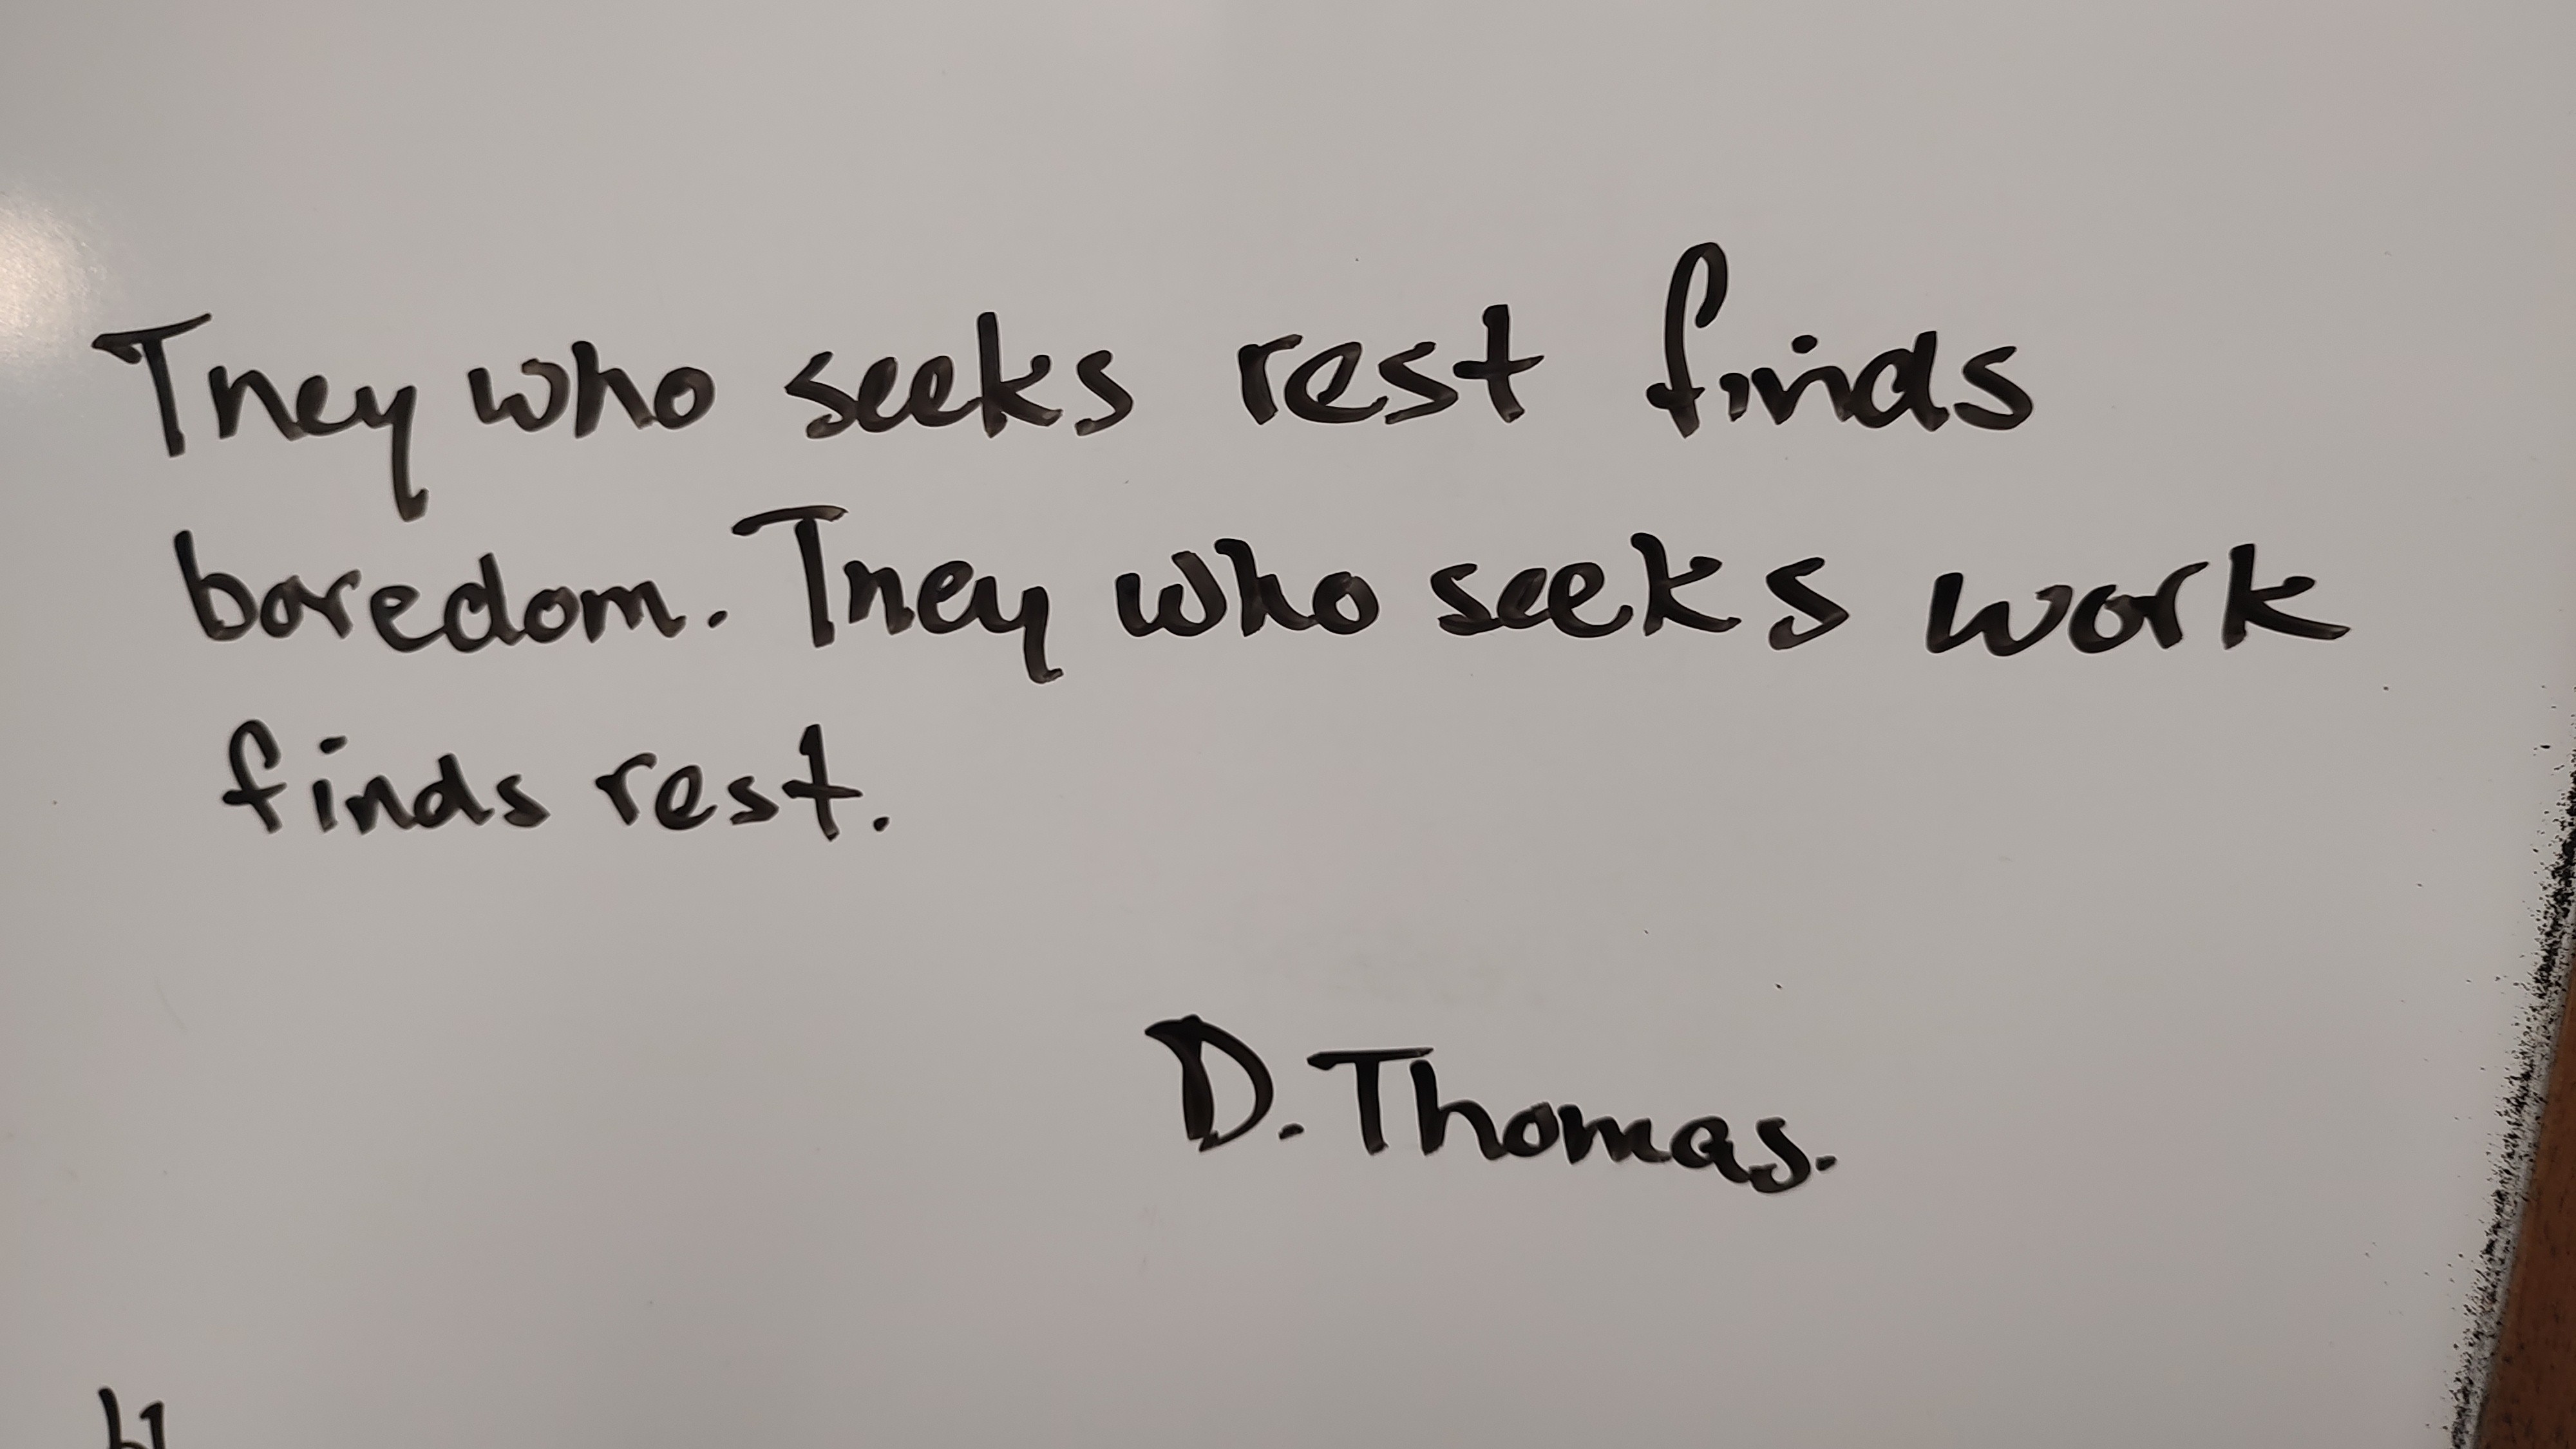 They who seeks rest finds
boredom. They who seeks work
finds rest.
D. Thomas.